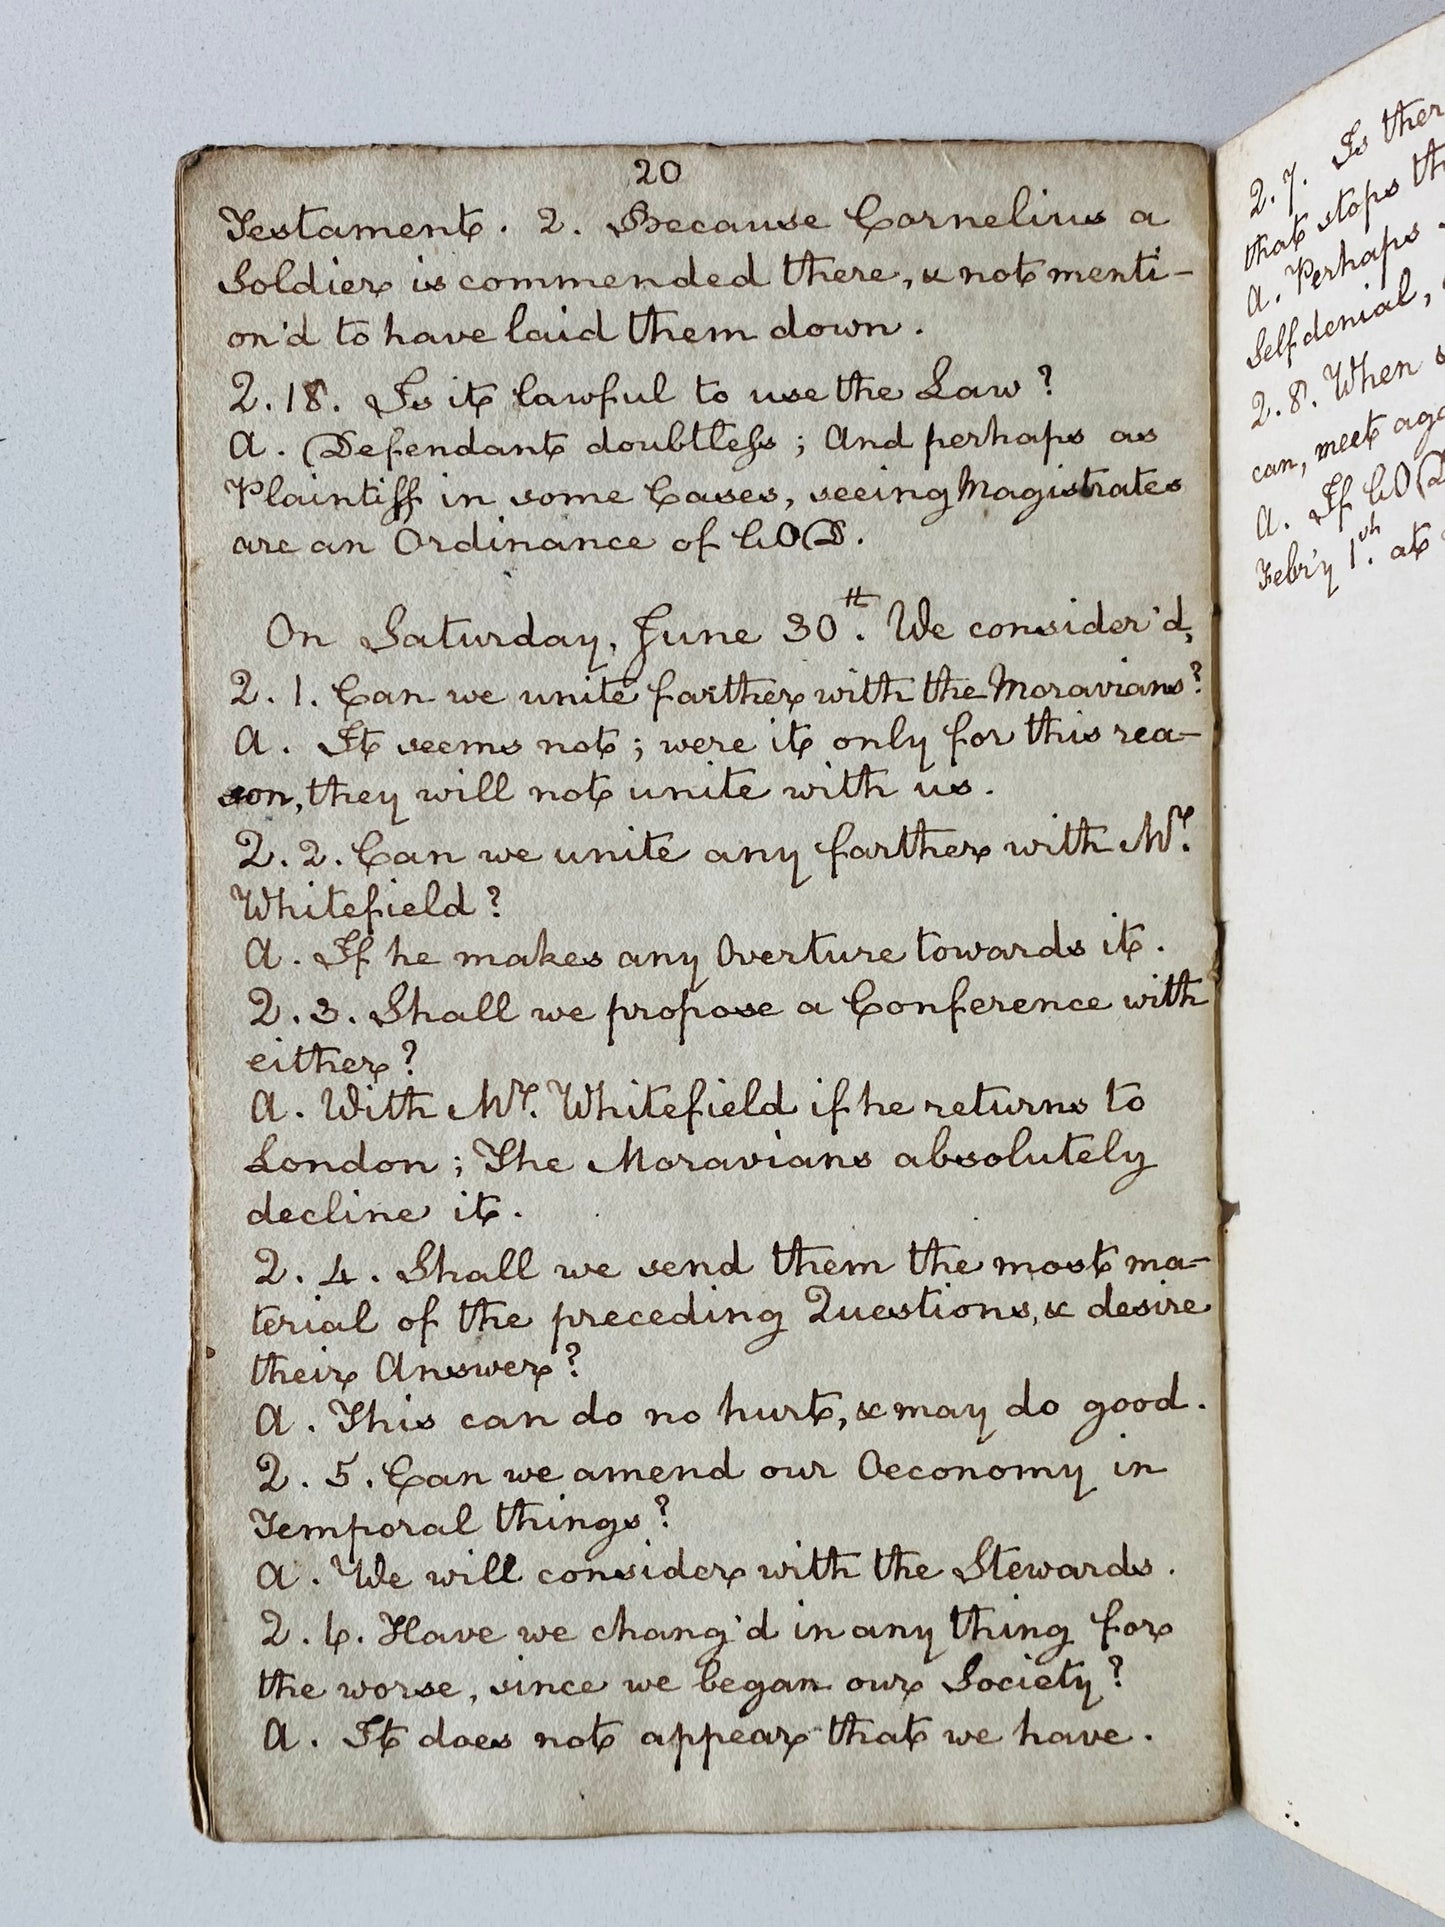 20
Testament. 2. Because Cornelius a
Soldier is commended there, & not menti-
on'd to have laid them down.
Q. 18. Is it lawful to use the Law?
A. Defendant doubtless; And perhaps as
Plaintiff in some Cases, seeing Magistrates
are an Ordinance of GOD.
On Saturday, June 30th. We consider'd,
Q. 1. Can we unite farther with the Moravians?
A. It seems not; were it only for this rea-
son, they will not unite with us.
Q. 2. Can we unite any farther with Mr.
Whitefield?
A. If he makes any Overture towards it.
Q. 3. Shall we propose a Conference with
either?
A. With Mr. Whitefield if he returns to
London; The Moravians absolutely
decline it.
Q. 4. Shall we send them the most ma-
terial of the preceding Questions, & desire
their Answer?
A. This can do no hurt, & may do good.
Q. 5. Can we amend our Oeconomy in
Temporal things?
A. We will consider with the Stewards.
Q. 6. Have we chang'd in any thing for
the worse, since we began our Society?
A. It does not appear that we have.
Q. 7. Is
that stops
A. Perhaps
Self denial,
Q. 8. When
can, meet
A. If GOD
Febr'y 1th. at